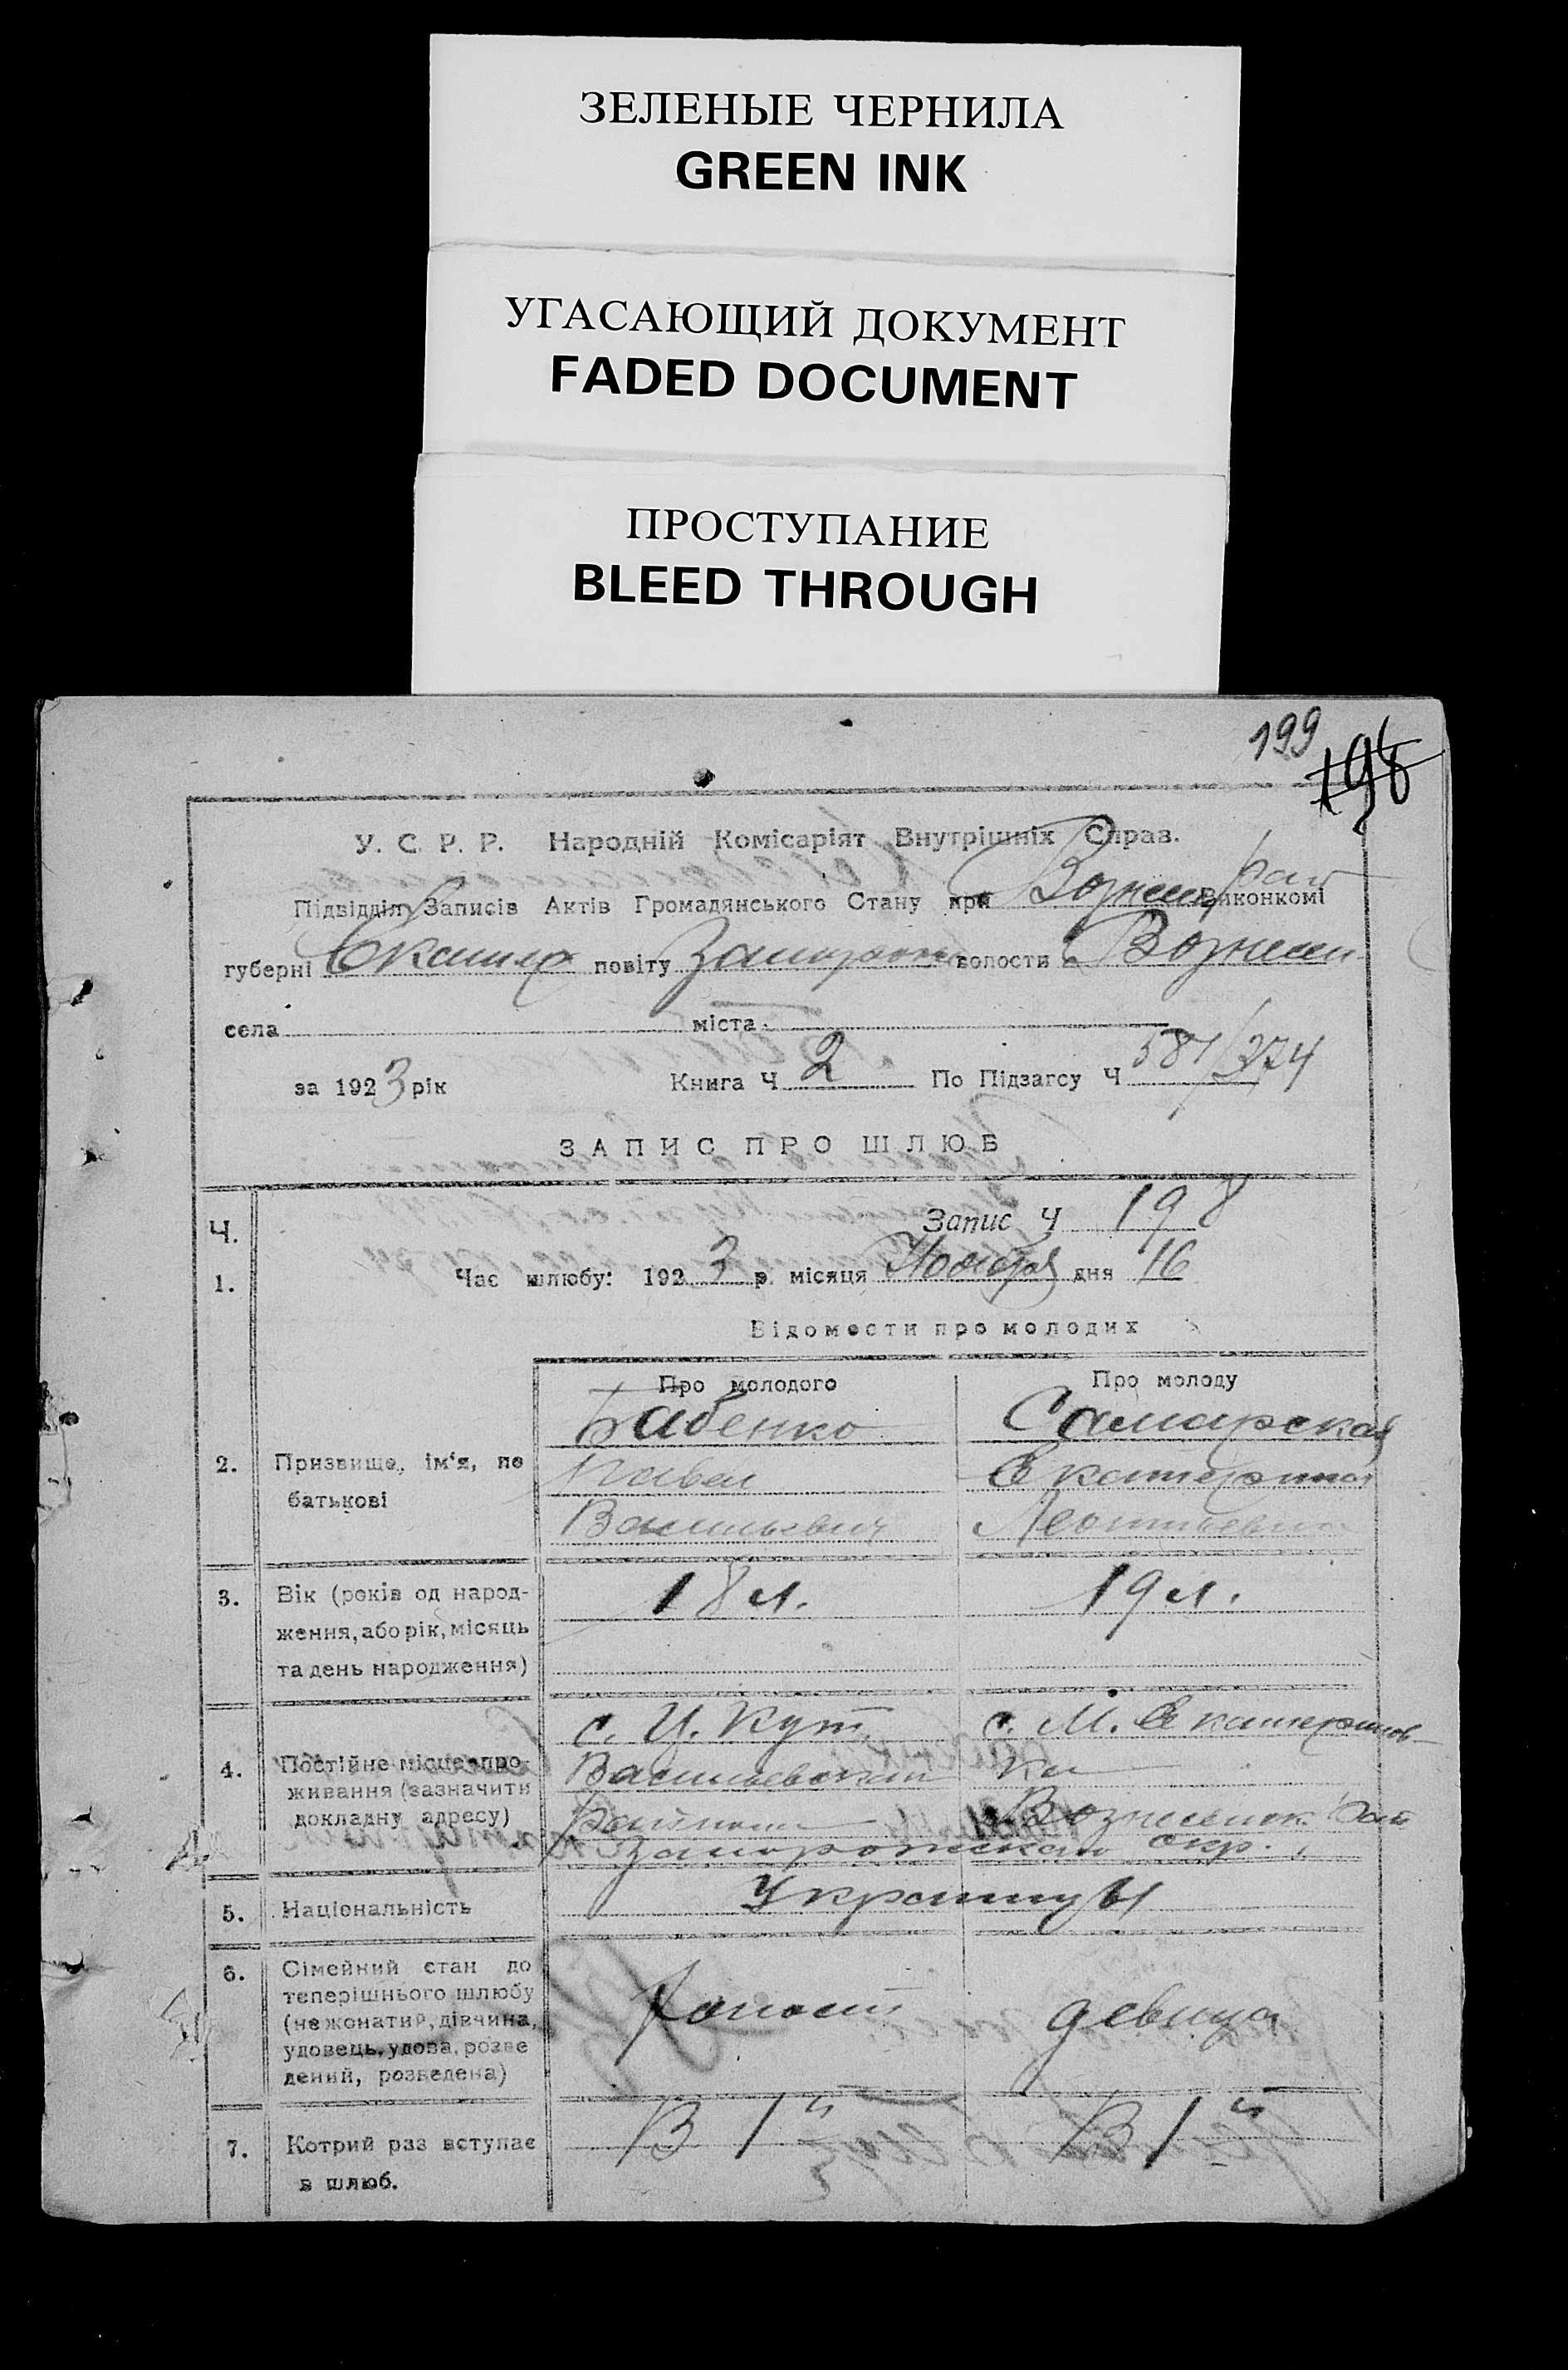 ЗЕЛЕНЫЕ ЧЕРНИЛА
GREEN INK
УГАСАЮЩИЙ ДОКУМЕНТ
FADED DOCUMENT
ПРОСТУПАНИЕ
BLEED THROUGH
199
198
У. С. Р. Р. Народній Комісаріят Внутрішніх Справ.
Підвідділ Записів Актів Громадянського Стану при Вознес. рай Виконкомі
губерні Екатер повіту Запорож волости Вознесен
села міста
за 1923 рік Книга Ч 2 По Підзагсу Ч 581/374
ЗАПИС ПРО ШЛЮБ
Ч. Запис Ч 198
1. Час шлюбу: 1923 р. місяця Ноября дня 16
Відомости про молодих
Про молодого Про молоду
Бабенко Самарская
2. Призвище, ім'я, по Павел Екатерина
батькові Васильевич Леонтьевна
3. Вік (років од народ- 18 л. 19 л.
ження, або рік, місяць
та день народження)
с. Ц. Кут с. М. Екатеринов-
4. Постійне місце про Васильевский ка
живання (зазначити
докладну адресу) района Вознесенск. Рай
Запорожскаго Окр.
5. Національність Украинцы
6. Сімейний стан до
теперішнього шлюбу
(не жонатий, дівчина, холост девица
удовець, удова, розве
дений, розведена)
7. Котрий раз вступає В 1й В 1й
в шлюб.